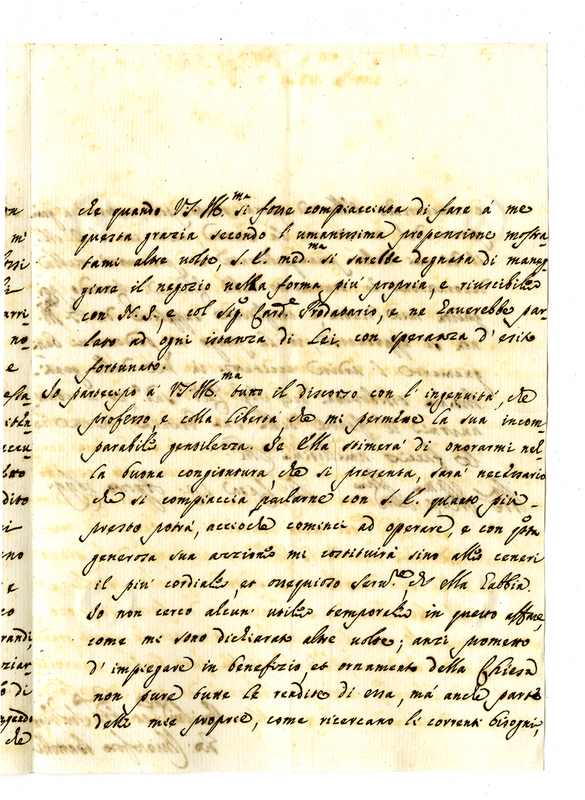 che quando V.S. Ill.ma si fosse compiacciuta di fare à me
questa grazia secondo l'umanissima propenzione mostra-
tami altre volte, S. E. med.ma si sarebbe degnata di maneg-
giare il negozio nella forma più propria, e riuscibile
con N. S., e col Sig.r Card.le Prodatario, e ne l'averebbe par-
lato ad ogni istanza di Lei con speranza d'esito
fortunato.
Io partecipo à V.S. Ill.ma tutto il discorso con l'ingenuità, che
professo, e colla libertà che mi permette la sua incom-
parabile gentilezza. Se Ella stimerà di onorarmi nel-
la buona congiontura che si presenta, sarà necessario
che si compiaccia parlarne con S. E. quanto più
presto potrà, acciochè cominci ad operare, e con q.sta
generosa sua azzione mi costituirà sino alle ceneri
il più cordiale, et ossequioso Serv.re che Ella habbia.
Io non cerco alcun' utile temporale in questo affare,
come mi sono dichiarato altre volte; anzi prometto
d'impiegare in benefizio et ornamento della Chiesa
non pure tutte le rendite di essa, mà anche parte
delle mie proprie, come ricercano li correnti bisogni,